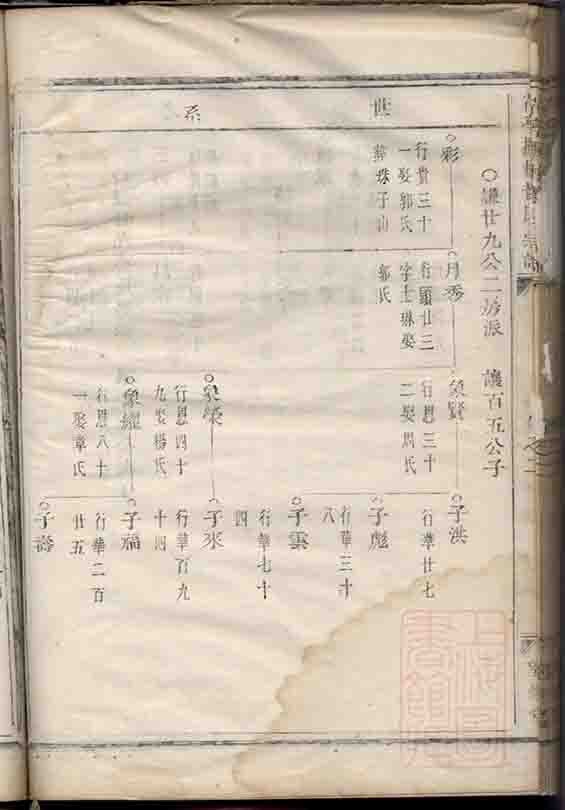 世系
○謙廿九公二房派 讓百五公子
彩
行貴三十
一娶郭氏
葬珠子山
月秀
行顯廿三
字士琳娶
郭氏
象賢
行恩三十
二娶周氏
子洪
行華廿七
子彪
行華三十
八
子雲
行華七十
四
象榮
行恩四十
九娶楊氏
子來
行華百九
十四
象耀
行恩八十
一娶章氏
子福
行華二百
廿五
子壽
上海圖書館藏